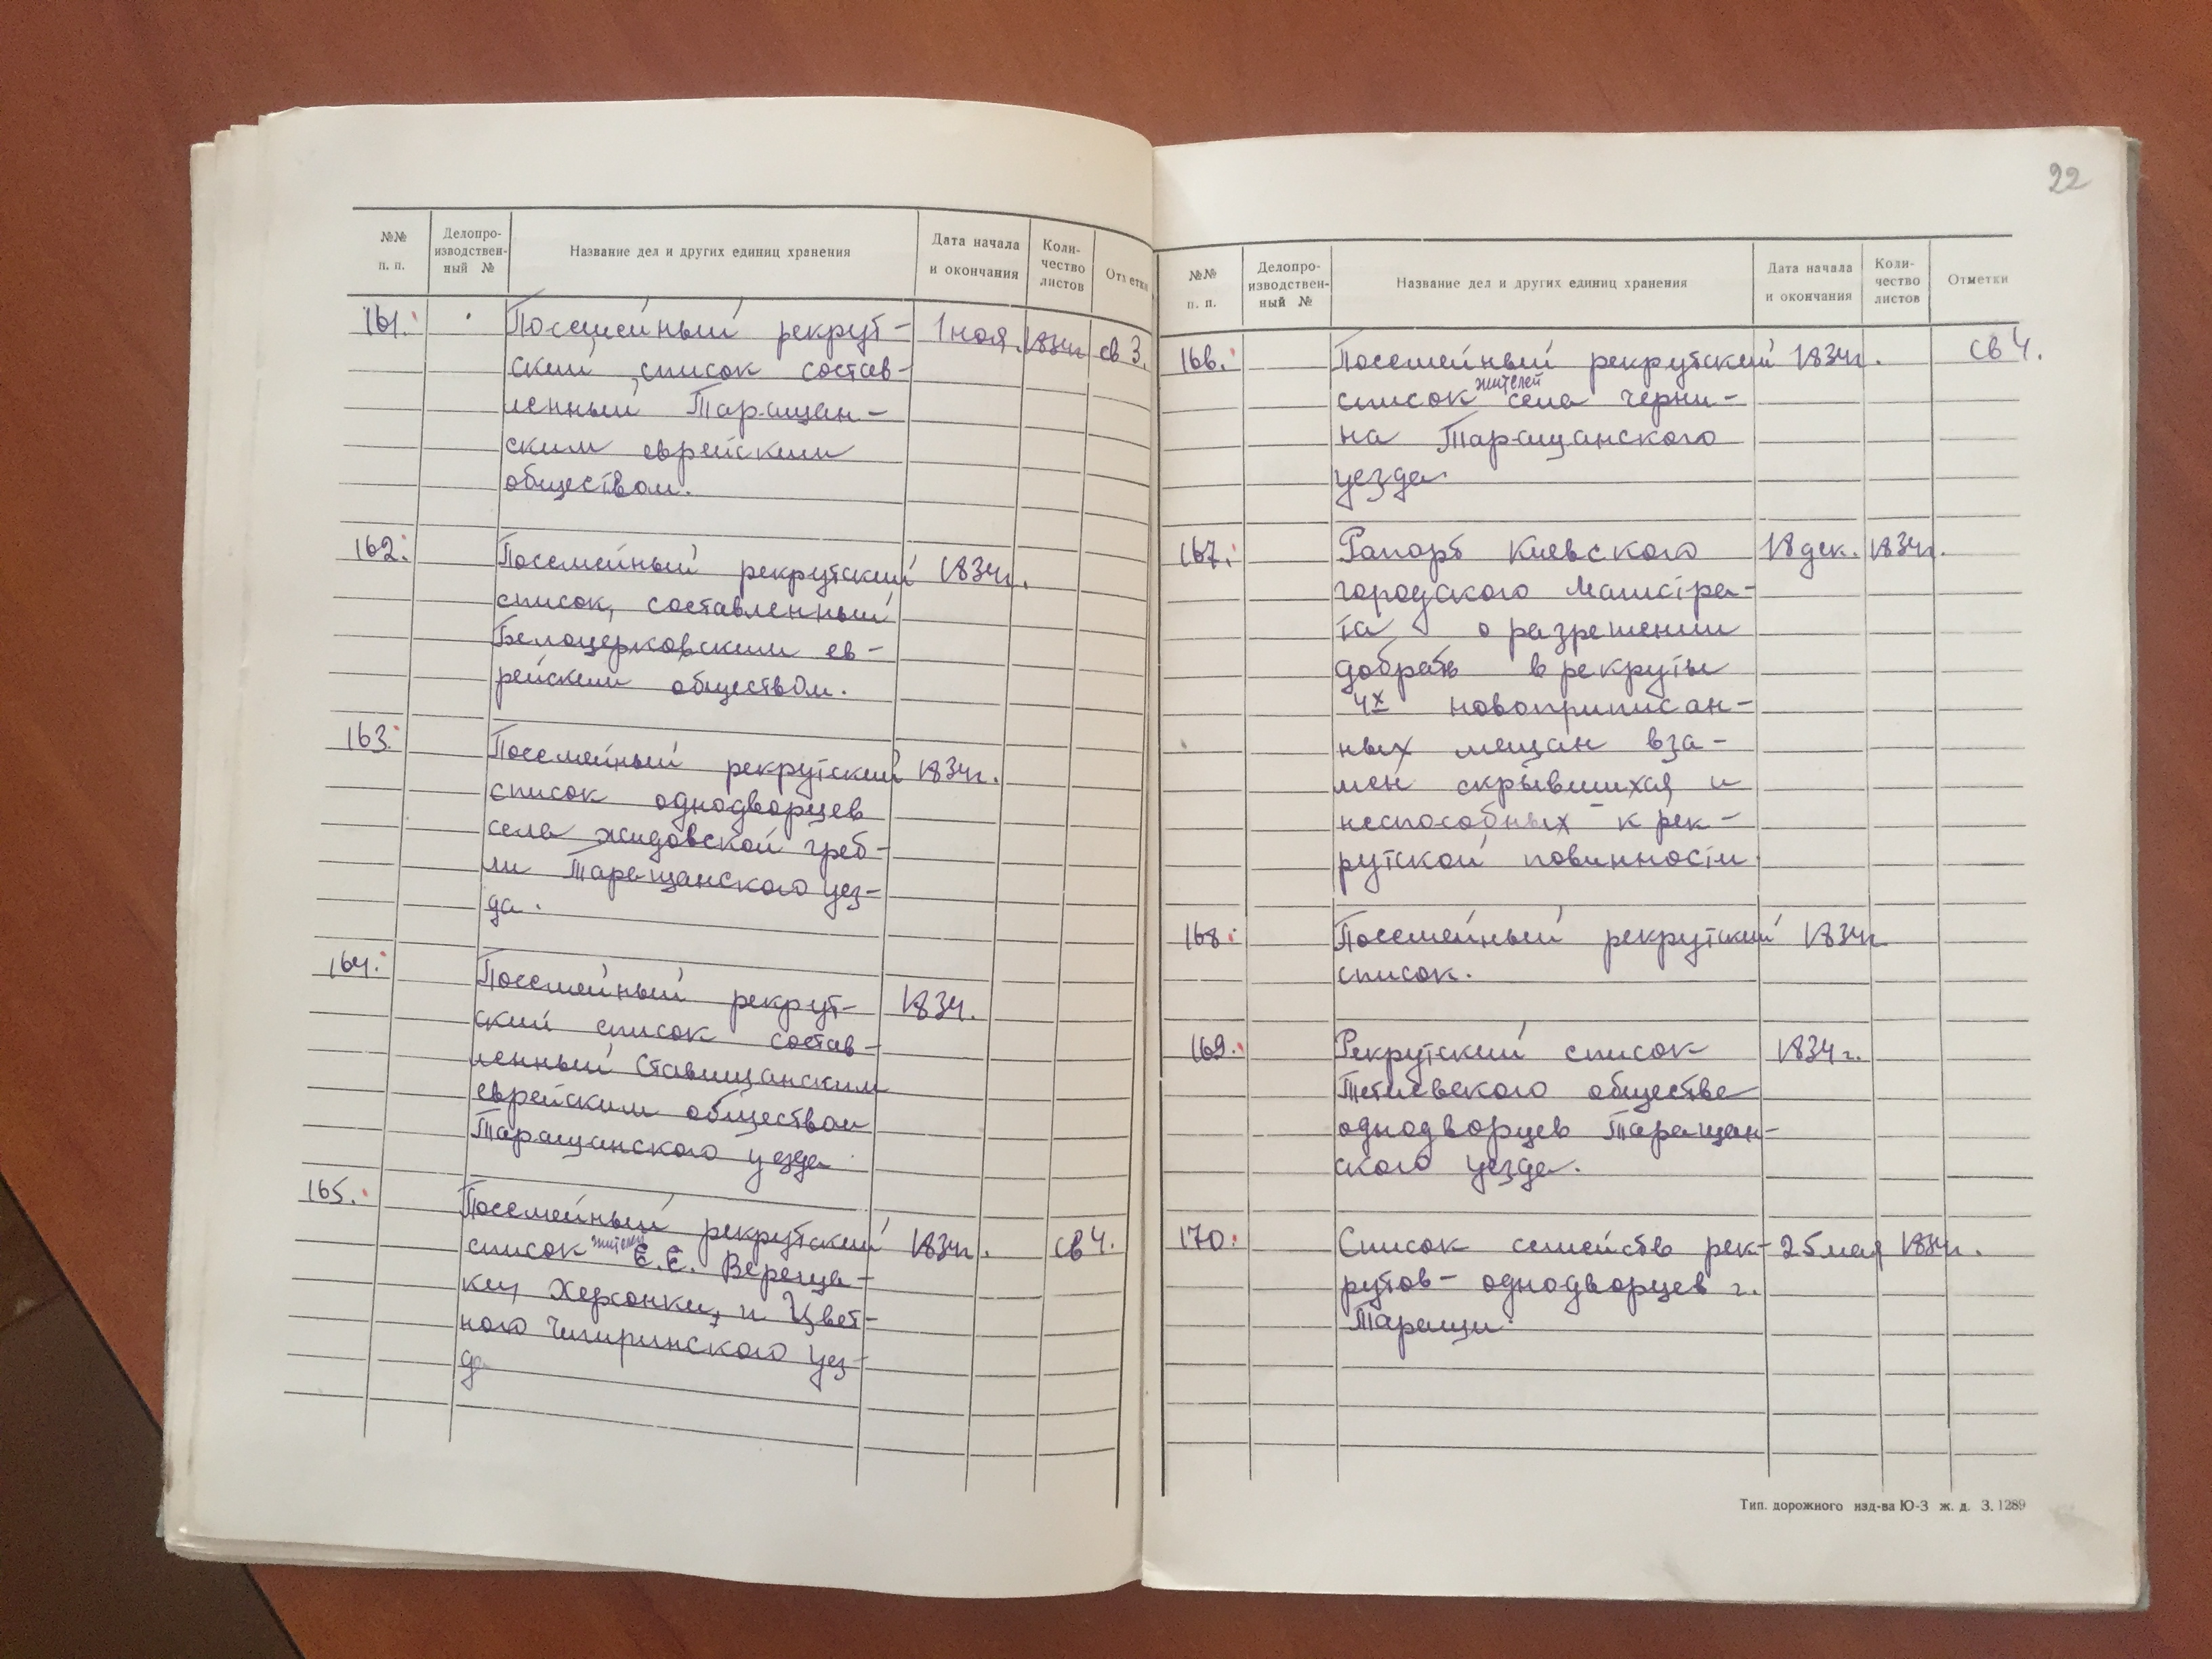 №№ п. п.
Делопро-
изводствен-
ный №
Название дел и других единиц хранения
Дата начала
и окончания
Коли-
чество
листов
Отметки
161. Посемейный рекрут- 1 ноя. 1834г св 3.
ский список состав-
ленный Таращан-
ским еврейским
обществом.
162. Посемейный рекрутский 1834г.
список, составленный
Белоцерковским ев-
рейским обществом.
163. Посемейный рекрутский 1834г.
список однодворцев
села Жидовской греб-
ли Таращанского уез-
да.
164. Посемейный рекрут- 1834.
ский список состав-
ленный Ставищанским
еврейским обществом
Таращанского уезда
165. Посемейный рекрутский 1834г. св 4.
список жителей Е.Е. Вереща-
ки, Херсонки, и Цвет-
ного Чигиринского уез-
да
22
№№ п. п.
Делопро-
изводствен-
ный №
Название дел и других единиц хранения
Дата начала
и окончания
Коли-
чество
листов
Отметки
166. Посемейный рекрутский 1834г. св 4.
список жителей села Черни-
на Таращанского
уезда
167. Рапорт Киевского 18 дек. 1834г.
городского Магистра-
та о разрешении
добрать в рекруты
4х новоприписан-
ных мещан вза-
мен скрывшихся и
неспособных к рек-
рутской повинности
168. Посемейный рекрутский 1834г
список.
169. Рекрутский список 1834г.
Тетиевского общества
однодворцев Таращан-
ского уезда.
170. Список семейств рек- 25 мая 1834г.
рутов- однодворцев г.
Таращи.
Тип. дорожного изд-ва Ю-З ж. д. З. 1289